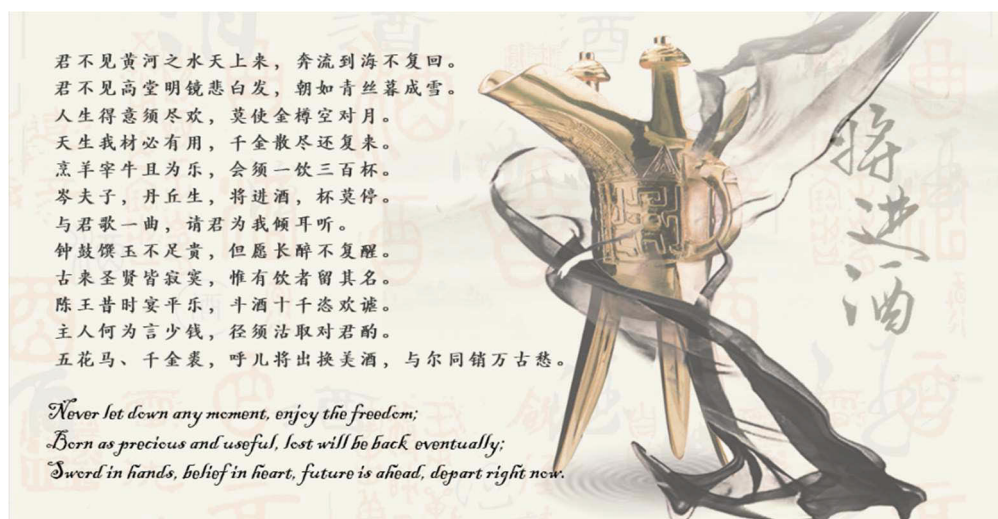 君不见黄河之水天上来，奔流到海不复回。
君不见高堂明镜悲白发，朝如青丝暮成雪。
人生得意须尽欢，莫使金樽空对月。
天生我材必有用，千金散尽还复来。
烹羊宰牛且为乐，会须一饮三百杯。
岑夫子，丹丘生，将进酒，杯莫停。
与君歌一曲，请君为我倾耳听。
钟鼓馔玉不足贵，但愿长醉不复醒。
古来圣贤皆寂寞，惟有饮者留其名。
陈王昔时宴平乐，斗酒十千恣欢谑。
主人何为言少钱，径须沽取对君酌。
五花马、千金裘，呼儿将出换美酒，与尔同销万古愁。
Never let down any moment, enjoy the freedom;
Born as precious and useful, lost will be back eventually;
Sword in hands, belief in heart, future is ahead, depart right now.
将进酒